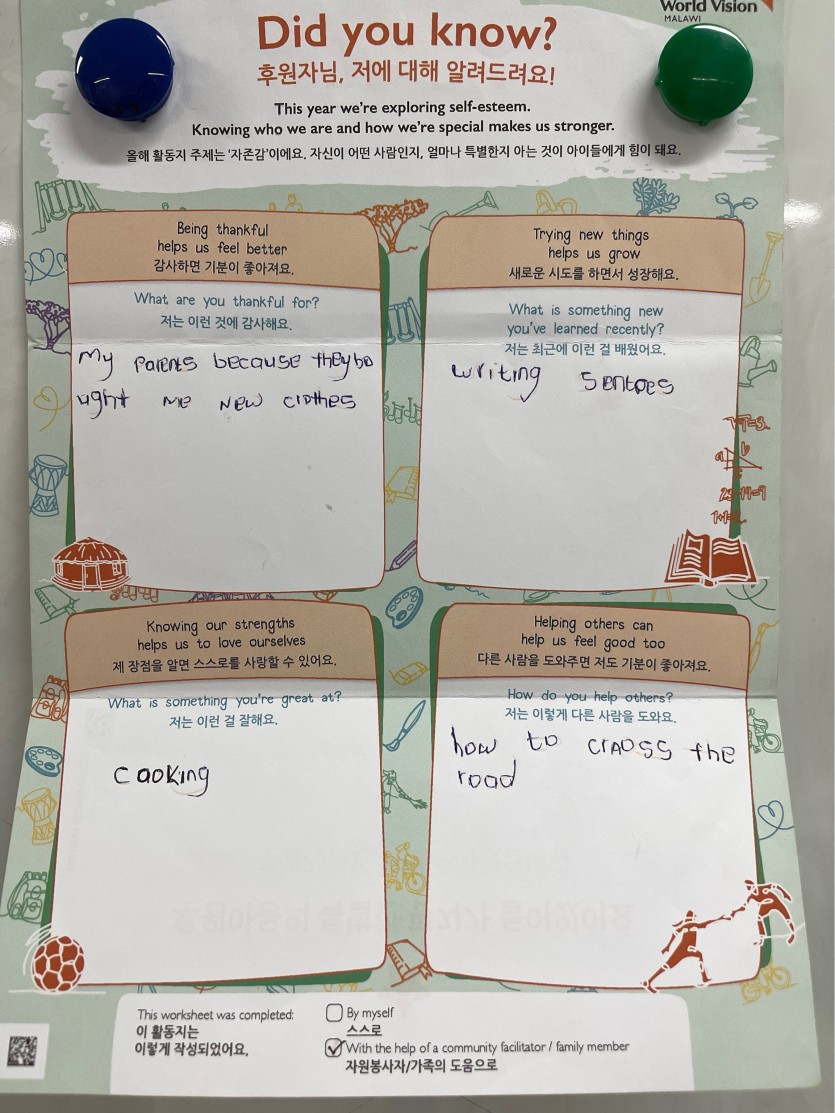 World Vision
MALAWI
Did you know?
후원자님, 저에 대해 알려드려요!
This year we're exploring self-esteem.
Knowing who we are and how we're special makes us stronger.
올해 활동지 주제는 '자존감'이에요. 자신이 어떤 사람인지, 얼마나 특별한지 아는 것이 아이들에게 힘이 돼요.
Being thankful
helps us feel better
감사하면 기분이 좋아져요.
What are you thankful for?
저는 이런 것에 감사해요.
My parents because theybo
ught me new clothes
Trying new things
helps us grow
새로운 시도를 하면서 성장해요.
What is something new
you've learned recently?
저는 최근에 이런 걸 배웠어요.
writing
Knowing our strengths
helps us to love ourselves
제 장점을 알면 스스로를 사랑할 수 있어요.
What is something you're great at?
저는 이런 걸 잘해요.
cooking
Helping others can
help us feel good too
다른 사람을 도와주면 저도 기분이 좋아져요.
How do you help others?
저는 이렇게 다른 사람을 도와요.
how to craoss the
road
This worksheet was completed:
이 활동지는
이렇게 작성되었어요.
By myself
스스로
With the help of a community facilitator / family member
자원봉사자/가족의 도움으로